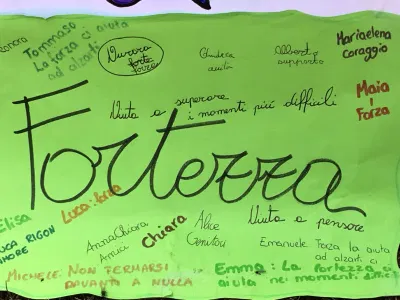 Tommaso:
La forza ci aiuta
ad alzarti
Aurora
forte
forza
Giulia
aiuta
Alberto
supporto
Mariaelena
coraggio
Maia
Forza
Aiuta a superare
i momenti più difficili
Fortezza
Elisa
LUCA RIGON
AMORE
Luca:
AnnaChiara
Amici
Chiara
Alice
Genitori
Aiuta a pensare
Emanuele Forza la aiuta
ad alzarti ci
MICHELE: NON FERMARSI
DAVANTI A NULLA
Emma: La fortezza ci
aiuta nei momenti difficili